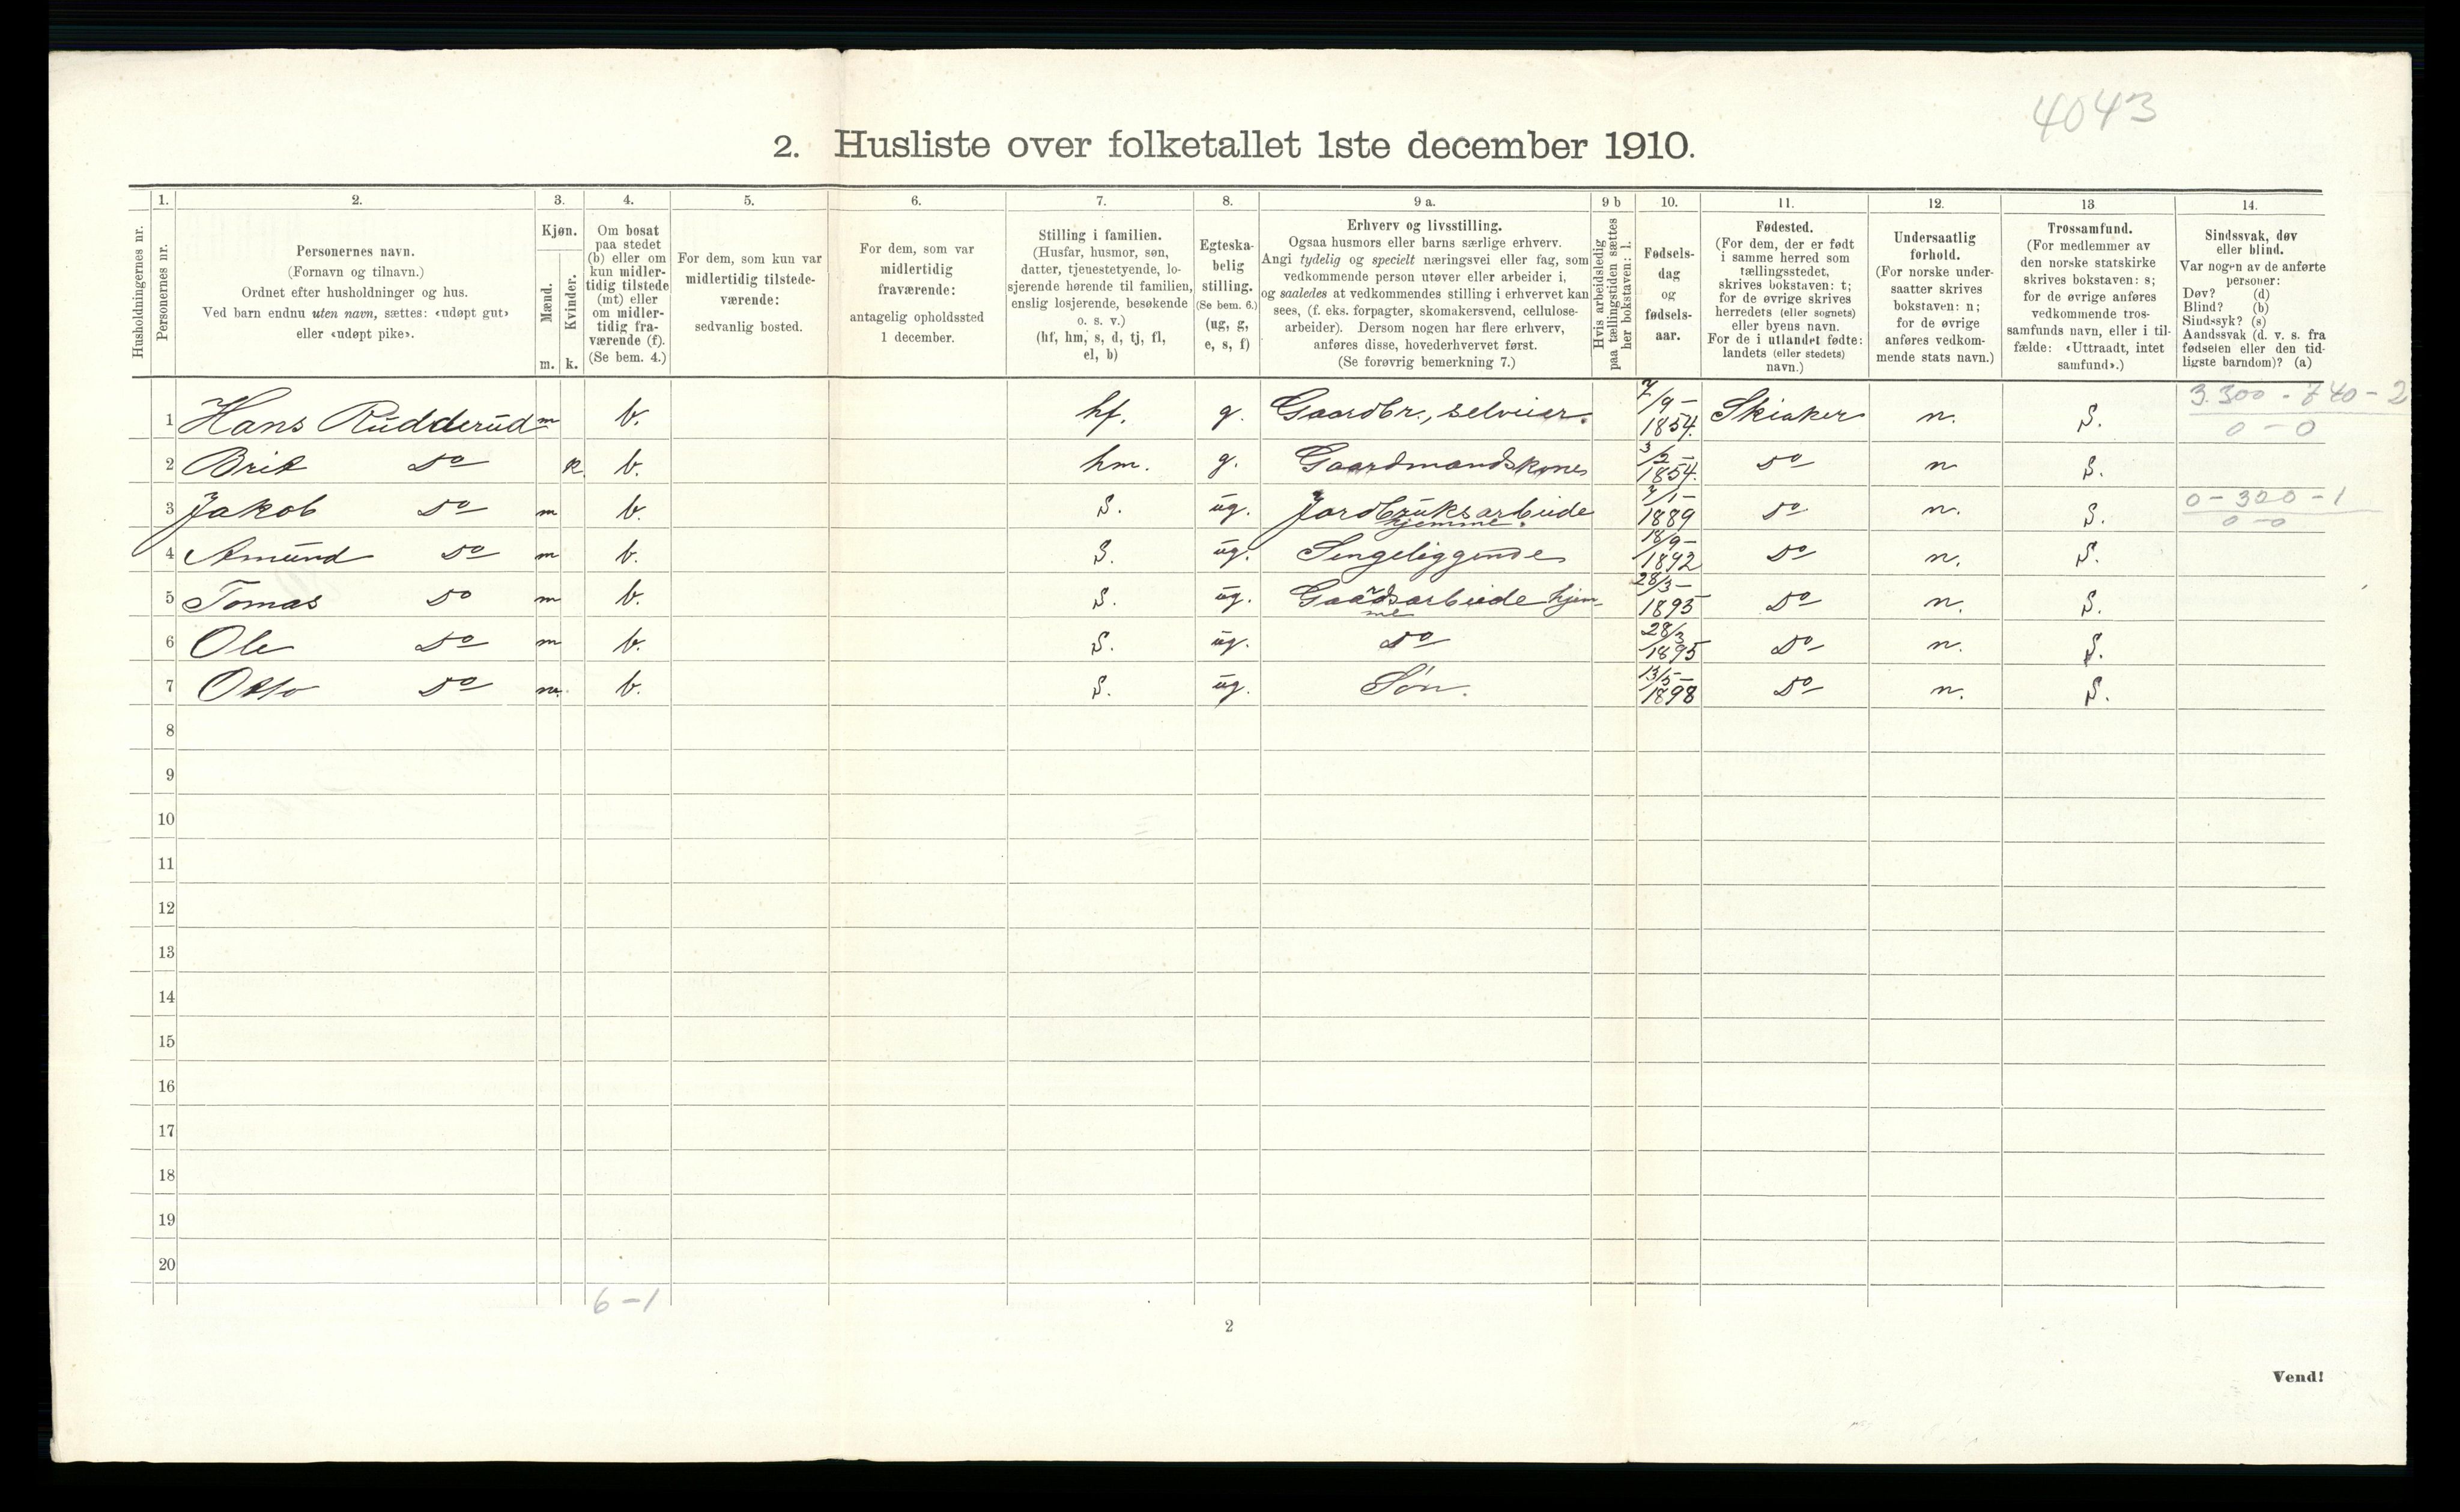 4043
2. Husliste over folketallet 1ste december 1910.
1. 2. 3. 4. 5. 6. 7. 8. 9 a. 9 b 10. 11. 12. 13 14.
Husholdningernes nr.
Personernes nr.
Personernes navn.
(Fornavn og tilnavn.)
Ordnet efter husholdninger og hus.
Ved barn endnu uten navn, sættes: «udøpt gut»
eller «udøpt pike».
Kjøn.
Mænd.
Kvinder.
m. k.
Om bosat
paa stedet
(b) eller om
kun midler-
tidig tilstede
(mt) eller
om midler-
tidig fra-
værende (f).
(Se bem. 4.)
For dem, som kun var
midlertidig tilstede-
værende:
sedvanlig bosted.
For dem, som var
midlertidig
fraværende:
antagelig opholdssted
1 december.
Stilling i familien.
(Husfar, husmor, søn,
datter, tjenestetyende, lo-
sjerende hørende til familien,
enslig losjerende, besøkende
o. s. v.)
(hf, hm, s, d, tj, fl,
el, b)
Egteska-
belig
stilling.
(Se bem. 6.)
(ug, g,
e, s, f)
Erhverv og livsstilling.
Ogsaa husmors eller barns særlige erhverv.
Angi tydelig og specielt næringsvei eller fag, som
vedkommende person utøver eller arbeider i,
og saaledes at vedkommendes stilling i erhvervet kan
sees, (f. eks. forpagter, skomakersvend, cellulose-
arbeider). Dersom nogen har flere erhverv,
anføres disse, hovederhvervet først.
(Se forøvrig bemerkning 7.)
Hvis arbeidsledig
paa tællingstiden sættes
her bokstaven: l.
Fødsels-
dag
og
fødsels-
aar.
Fødested.
(For dem, der er født
i samme herred som
tællingsstedet,
skrives bokstaven: t;
for de øvrige skrives
herredets (eller sognets)
eller byens navn.
For de i utlandet fødte:
landets (eller stedets)
navn.)
Undersaatlig
forhold.
(For norske under-
saatter skrives
bokstaven: n;
for de øvrige
anføres vedkom-
mende stats navn.)
Trossamfund.
(For medlemmer av
den norske statskirke
skrives bokstaven: s;
for de øvrige anføres
vedkommende tros-
samfunds navn, eller i til-
fælde: «Uttraadt, intet
samfund».)
Sindssvak, døv
eller blind.
Var nogen av de anførte
personer:
Døv? (d)
Blind? (b)
Sindssyk? (s)
Aandssvak (d. v. s. fra
fødselen eller den tid-
ligste barndom)? (a)
3.300 - 740 - 2
0 - 0
1 Hans Rudderud m b. hf. g. Gaardbr., selveier. 7/9 - 1854. Skiaker n. S.
2 Brit Do k. b. hm. g. Gaardmandskone 3/5 - 1854. Do n S.
3 Jakob Do m b. S. ug. Jordbruksarbeide hjemme. 7/1 - 1889 Do n. S. 0 - 320 - 1
0 - 0
4 Amund Do m b. S. ug. Sengeliggende 18/9 - 1892 Do n. S.
5 Tomas Do m b. S. ug. Gaardsarbeide hjemme 28/3 - 1895 Do n. S.
6 Ole Do m b. S. ug. Do 28/3 1895 Do n. S.
7 Otto Do m. b. S. ug. Søn. 13/5 - 1898 Do n. S.
8
9
10
11
12
13
14
15
16
17
18
19
20
6 - 1
2
Vend!